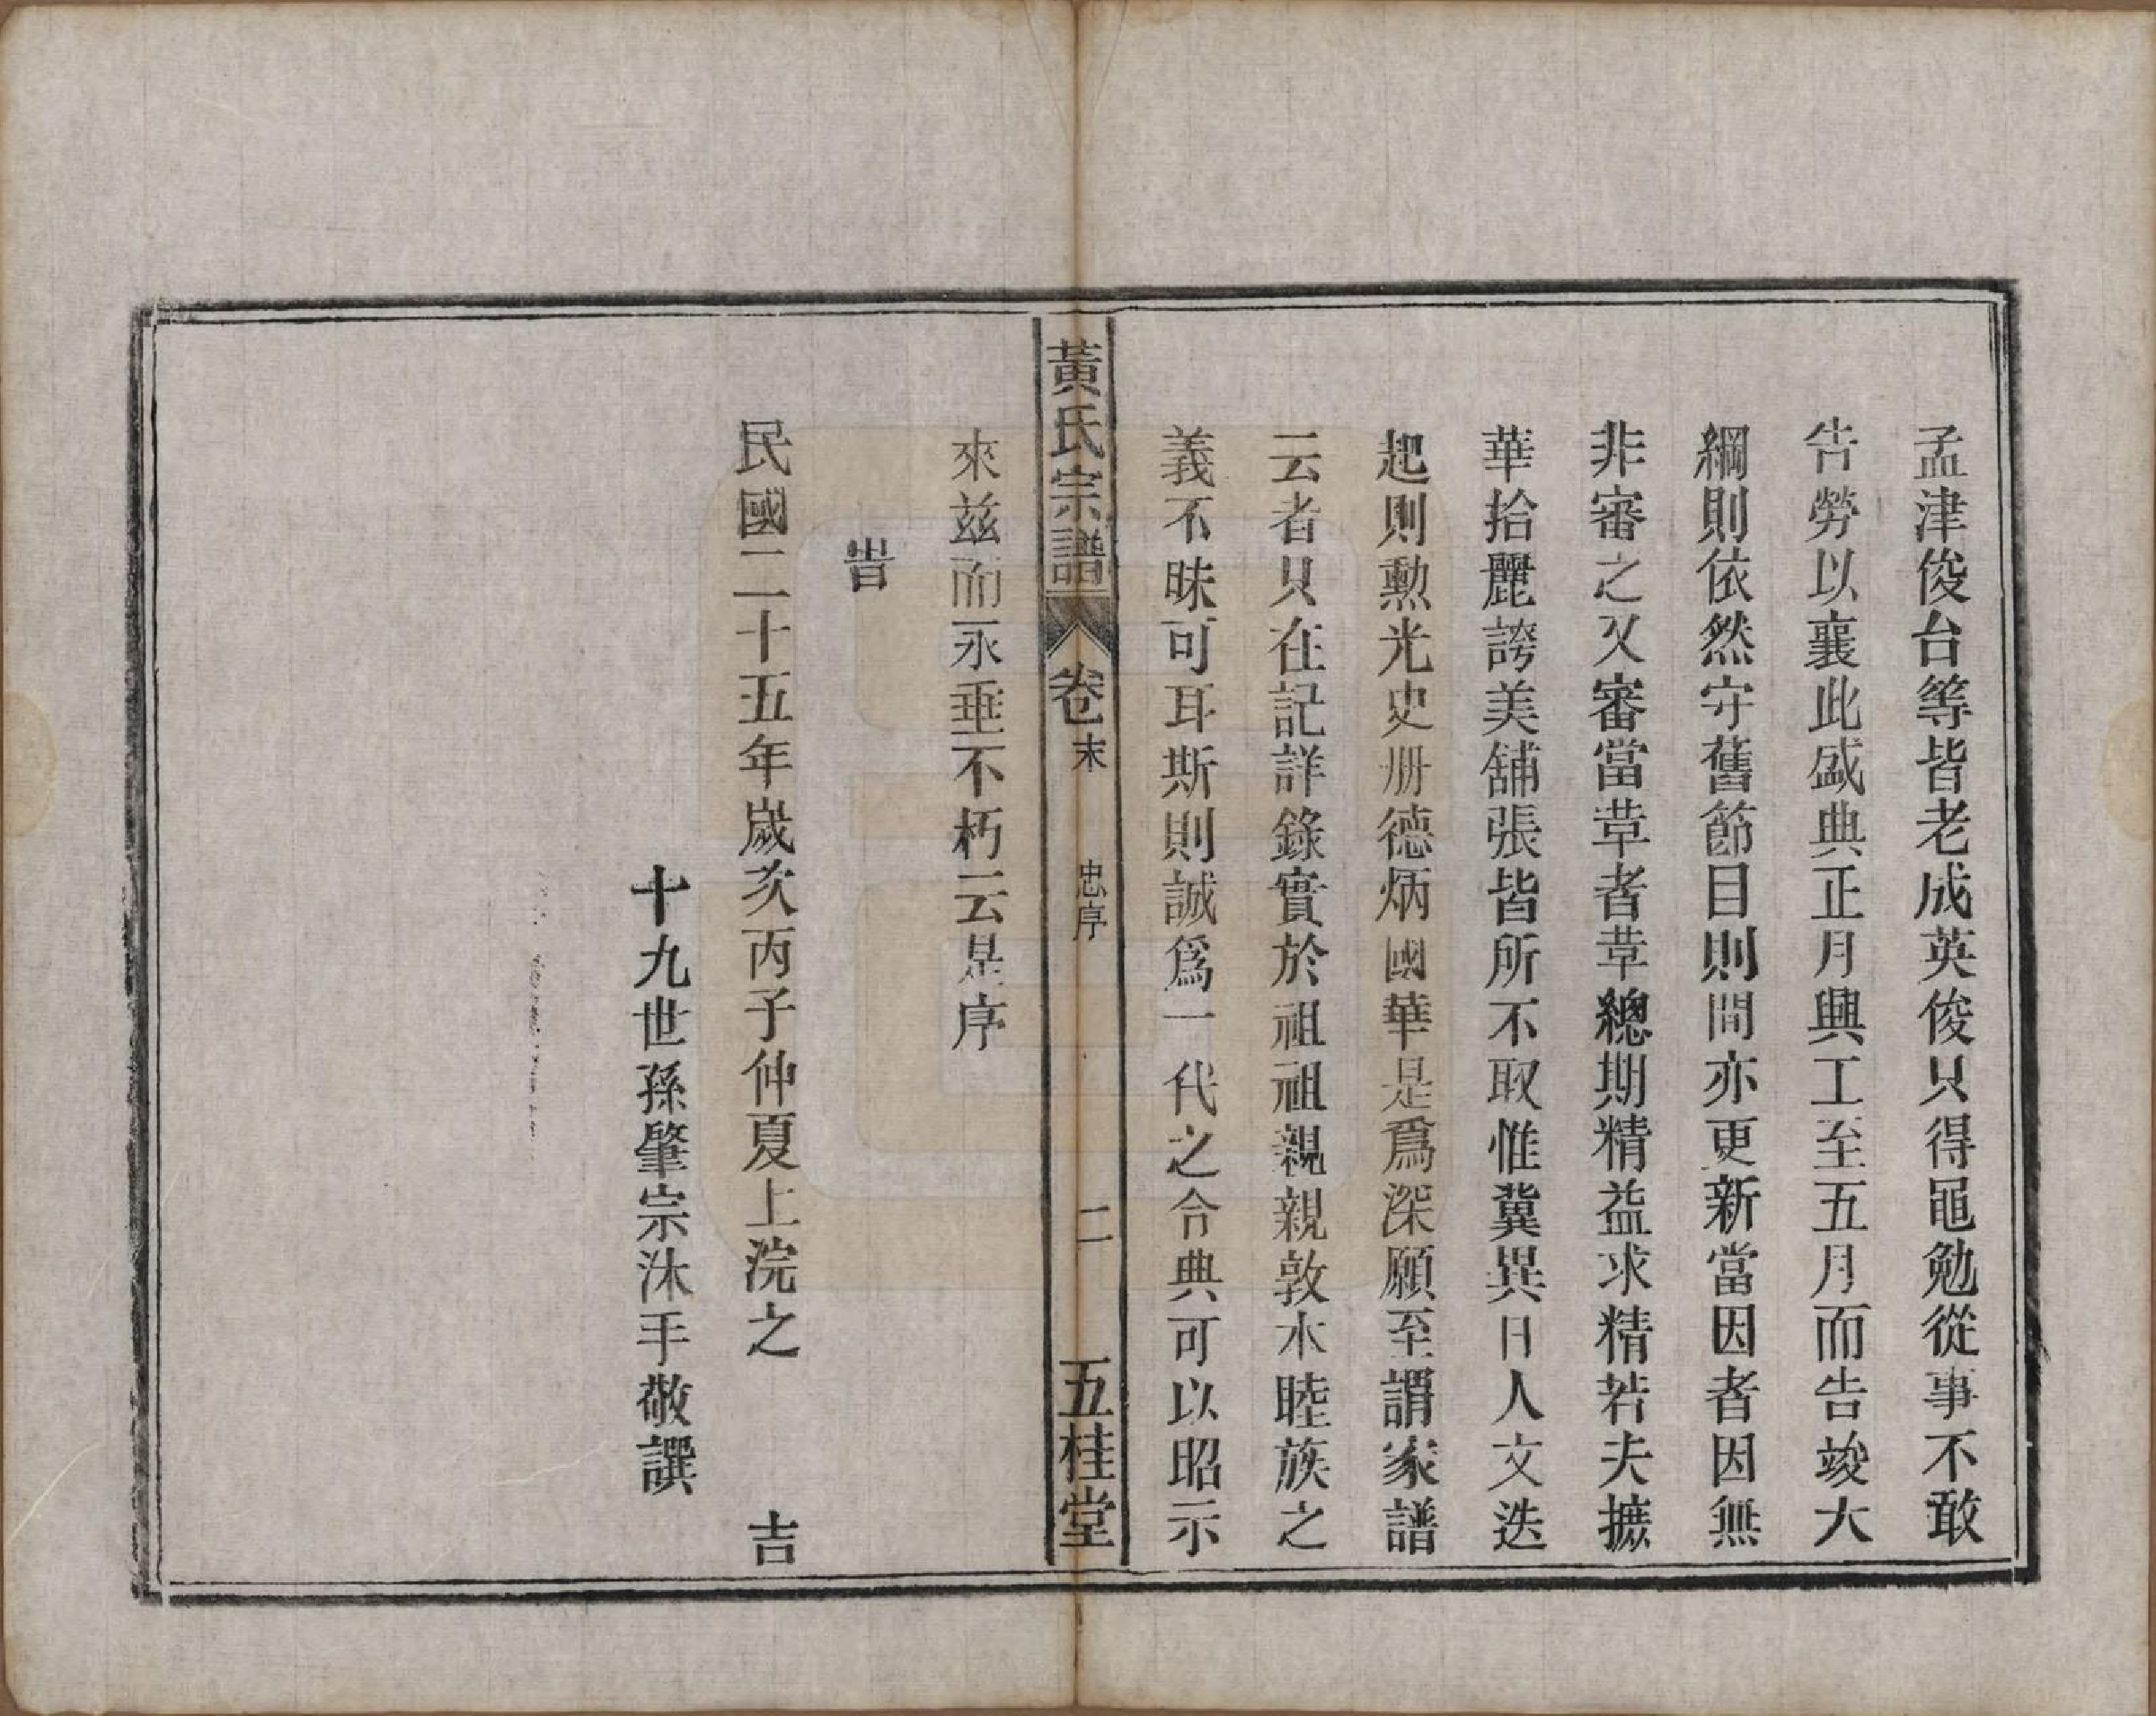 孟津俊台等皆老成英俊只得黽勉從事不敢
告勞以襄此盛典正月興工至五月而告竣大
綱則依然守舊節目則間亦更新當因者因無
非審之又審當革者革總期精益求精若夫摭
華拾麗誇美舖張皆所不取惟冀異日人文迭
起則勳光史册德炳國華是爲深願至謂家譜
云者只在記詳錄實於祖祖親親敦本睦族之
義不昧可耳斯則誠爲一代之令典可以昭示
黃氏宗譜 卷末 忠序 二 五桂堂
來兹而永垂不朽云是序
旹
民國二十五年歲次丙子仲夏上浣之 吉
十九世孫肇宗沐手敬譔